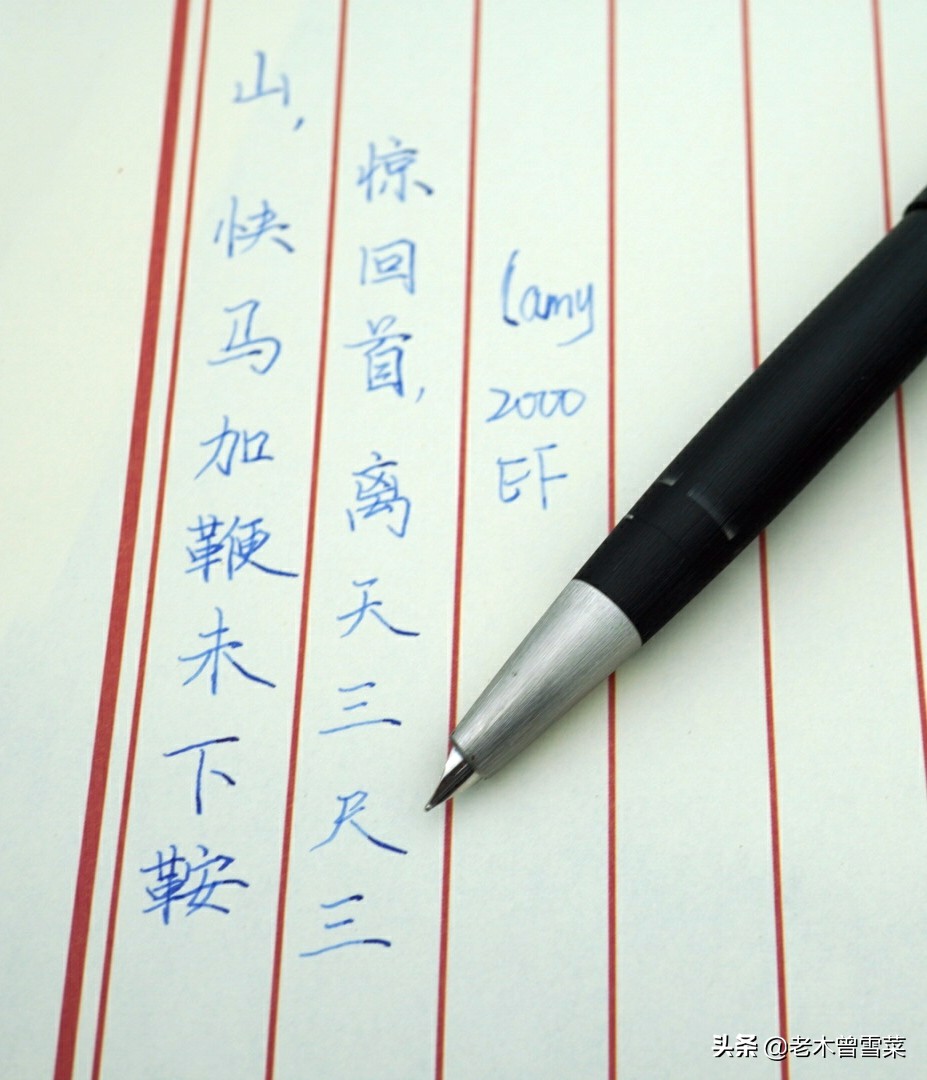 山,快马加鞭未下鞍
惊回首,离天三尺三
Lamy
2000
EF
头条 @老木曾雪菜